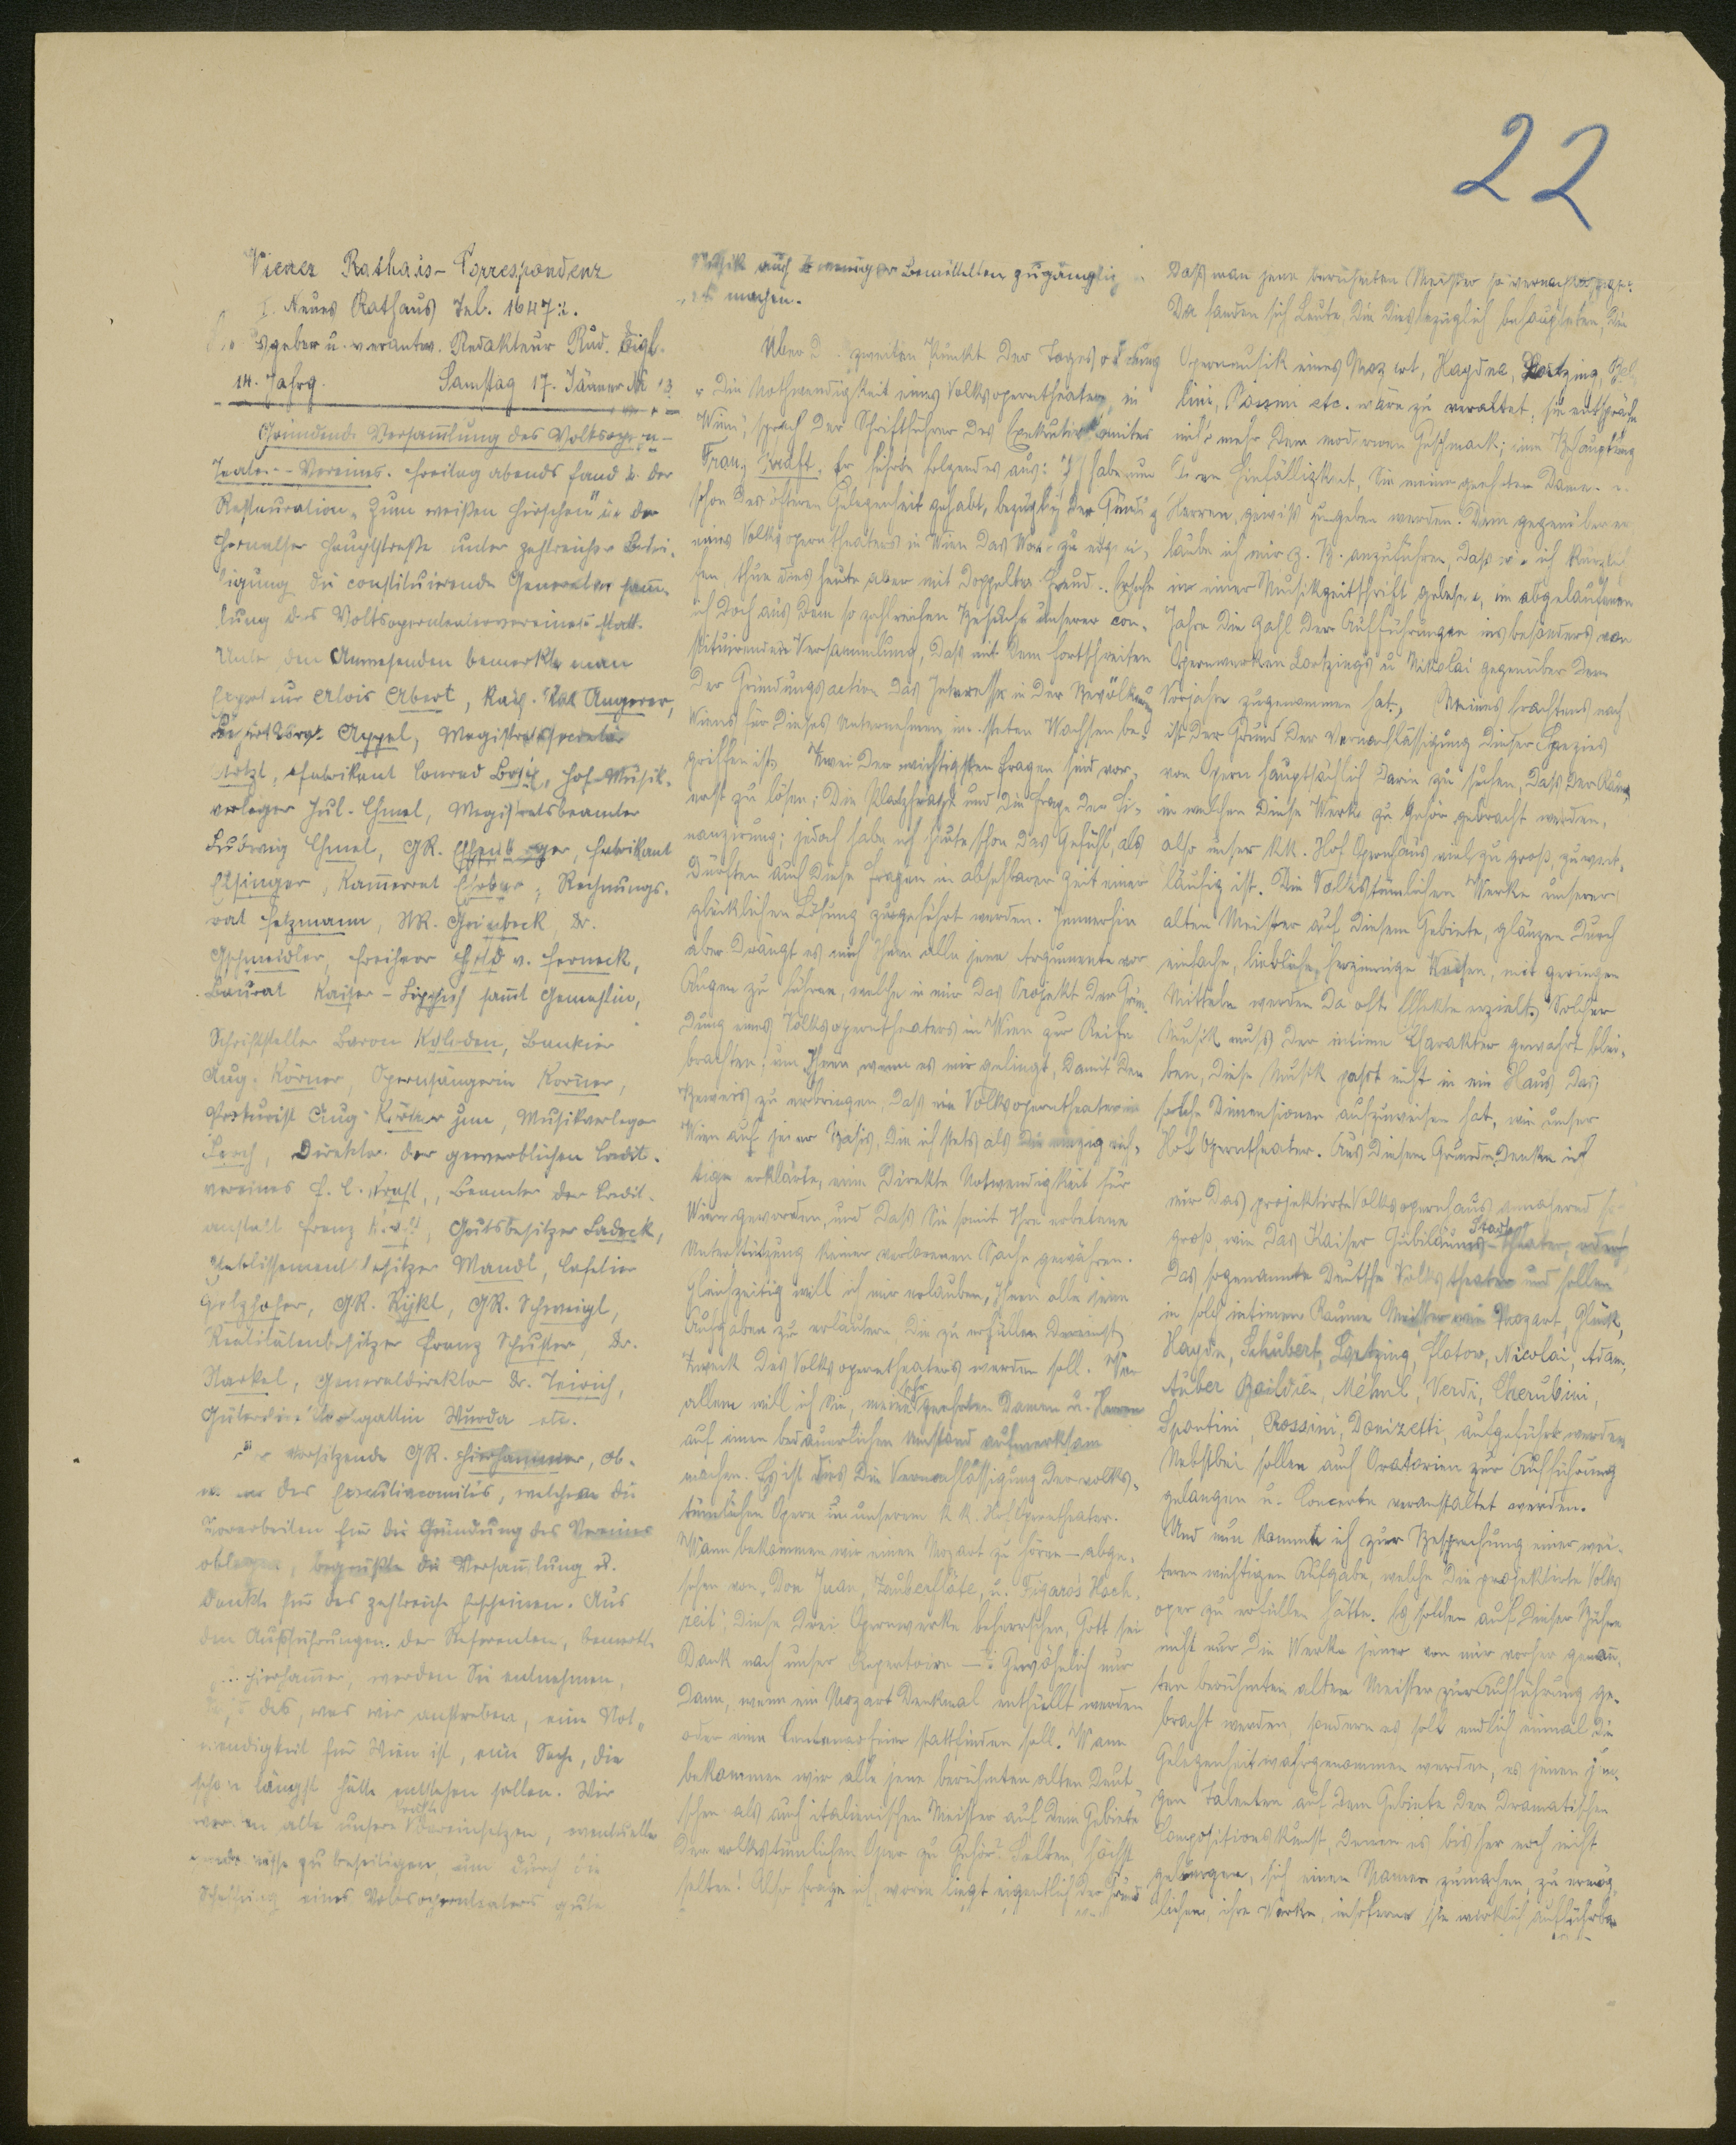 22
Wiener Rathaus-Correspondenz
I. Neues Rathaus Tel. 16472.
geber u. verantw. Redakteur Rud. Eigl.
14. Jahrg. Samstag 17. Jänner
Gründende Versam̅lung des Volksopern-
Teater-Vereines. Freitag abends fand in der
Restauration „Zum weißen Hirschen" in der
Hernalser Hauptstraße unter zahlreicher Betei-
ligung die constituierende Generalversam̅-
lung des Volksopernteatervereines statt.
Unter den Anwesenden bemerkte man
Exporteur Alois Abert, Kais. Rat Angerer,
Appel, Magistratssecretär
Fabrikant Conrad Hof-Musik-
verleger Jul. Chmel, Magistratsbeamter
Ludwig Chmel, GR. Fabrikant
Kam̅errat Rechnungs-
rat Fetzmann, Dr.
Gschmeidler, Freiherr v. Ferneck,
Baurat Kaiser- sam̅t Gemahlin,
Schriftsteller Baron Bankier
Aug. Körner, Opernsängerin Körner,
Prokurist Aug. Körner jun, Musikverleger
Direktor der gewerblichen Credit-
vereines Beamter der Credit-
anstalt Franz Gutsbesitzer Ladeck,
Etablissementbesitzer Mandl, Cafetier
GR. Rykl, GR. Schweigl,
Realitätenbesitzer Franz Schuster, Dr.
Generaldirektor Dr. Teirich,
Wurda etc.
Der Vorsitzende GR. Hierhammer, Ob-
des Executivcomités, welchem die
Vorarbeiten für die Gründung des Vereines
oblagen, begrüßte die Versam̅lung u.
dankte für das zahlreiche Erscheinen. Aus
den Ausführungen der Referenten, bemerkte
Hierham̅er, werden Sie entnehmen,
daß das, was wir anstreben, eine Not-
wendigkeit für Wien ist, eine Sache, die
schon längst hätte entstehen sollen. Wir
werden alle unsere Kräfte dareinsetzen, eventuelle
zu beseitigen, um durch die
Schaffung eines Volksopernteaters gute
Musik auch weniger Bemittelten zugänglich
zu machen.
Über d. zweiten Punkt der Tagesordnung
„Die Nothwendigkeit eines Volksoperntheaters in
Wien", sprach der Schriftführer des Exekutivkomites
Franz Kraft. Er führte folgendes aus: Ich habe nun
schon des öfteren Gelegenheit gehabt, bezüglich der Gründung
eines Volksoperntheaters in Wien das Wort zu ergrei-
fen, thue dies heute aber mit doppelter Freude. Ersehe
ich doch aus dem so zahlreichen Besuche unserer con-
stituirenden Versammlung, daß mit dem Fortschreiten
der Gründungsaction das Interesse in der Bevölkerung
Wiens für dieses Unternehmen im steten Wachsen be-
griffen ist. Zwei der wichtigsten Fragen sind vor-
erst zu lösen; die Platzfrage und die Frage der Fi-
nanzierung; jedoch habe ich heute schon das Gefühl, als
dürften auch diese Fragen in absehbarer Zeit einer
glücklichen Lösung zugeführt werden. Immerhin
aber drängt es mich Ihnen alle jene Argumente vor
Augen zu führen, welche in mir das Projekt der Grün-
dung eines Volksoperntheaters in Wien zur Reife
brachten, um Ihnen, wenn es mir gelingt, damit den
Beweis zu erbringen, daß ein Volksoperntheater in
Wien auf jener Basis, die ich stets als die einzig rich-
tige erklärte, eine direkte Notwendigkeit für
Wien geworden, und daß Sie somit Ihre erbetene
Unterstützung keiner verlorenen Sache gewähren.
Gleichzeitig will ich mir erlauben, Ihnen alle jene
Aufgaben zu erläutern, die zu erfüllen dereinst
Zweck des Volksoperntheaters werden soll. Vor
allem will ich Sie, meine sehr geehrten Damen u. Herren
auf einen bedauerlichen Umstand aufmerksam
machen. Es ist dies die Vernachlässigung der volks-
tümlichen Opern in unserem k.k. Hofoperntheater.
Wann bekommen wir einen Mozart zu hören – abge-
sehen von „Don Juan, Zauberflöte, u. Figaros Hoch-
zeit", diese drei Opernwerke beherrschen, Gott sei
Dank noch unser Repertoire –? Gewöhnlich nur
dann, wenn ein Mozart Denkmal enthüllt werden
oder eine Centenarfeier stattfinden soll. Wann
bekommen wir alle jene berühmten alten Deut-
schen als auch italienischen Meister auf dem Gebiete
der volkstümlichen Oper zu Gehör? Selten, höchst
selten! Also frage ich, worin liegt eigentlich der Grund
daß man jene berühmten Meister so vernachlässigt?
Da fanden sich Leute, die diesbezüglich behaupteten, die
Opernmusik eines Mozart, Haydn, Lortzing, Bel-
lini, Rossini etc. wäre zu veraltet, sie entspräche
nicht mehr dem modernen Geschmack; eine Behauptung
deren Hinfälligkeit, Sie meine geehrten Damen u.
Herren, gewiß zugeben werden. Dem gegenüber er-
laube ich mir z. B. anzuführen, daß wie ich kürzlich
in einer Musikzeitschrift gelesen, im abgelaufenen
Jahre die Zahl der Aufführungen insbesonders von
Opernwerken Lortzing's u Nikolai gegenüber dem
Vorjahre zugenommen hat. Meines Erachtens nach
ist der Grund der Vernachlässigung dieser Spezies
von Opern hauptsächlich darin zu suchen, daß der Raum
in welchem diese Werke zu Gehör gebracht werden,
also unser kk. Hof Opernhaus viel zu groß, zu weit-
läufig ist. Die volkstümlichen Werke unserer
alten Meister auf diesem Gebiete, glänzen durch
einfache, liebliche, herzinnige Weisen, mit geringen
Mitteln werden da oft Effekte erzielt. Solcher
Musik muß der intime Charakter gewahrt blei-
ben, diese Musik passt nicht in ein Haus, das
solche Dimensionen aufzuweisen hat, wie unser
Hof Operntheater. Aus diesem Grunde denke ich
mir das projektirte Volksopernhaus annähernd so
groß, wie das Kaiser Jubiläums-Stadttheater, oder
das sogenannte Deutsche Volkstheater und sollen
in solch intimem Raume Meister wie Mozart, Gluck,
Haydn, Schubert, Lortzing, Flotow, Nicolai, Adam,
Auber Boildieu, Méhul, Verdi, Cherubini,
Spontini, Rossini, Donizetti, aufgeführt werden
Nebstbei sollen auch Oratorien zur Aufführung
gelangen u. Concerte veranstaltet werden.
Und nun komme ich zur Besprechung einer wei-
teren wichtigen Aufgabe, welche die projektirte Volks
oper zu erfüllen hätte. Es sollen auf dieser Bühne
nicht nur die Werke jener von mir vorher genan̅-
ten berühmten alten Meister zur Aufführung ge-
bracht werden, sondern es soll endlich einmal die
Gelegenheit wahrgenommen werden, es jenen jun-
gen Talenten auf dem Gebiete der dramatischen
Compositionskunst, denen es bisher noch nicht
gelungen, sich einen Namen zu machen, zu ermög-
lichen, ihre Werke, insoferne sie wirklich aufführbar